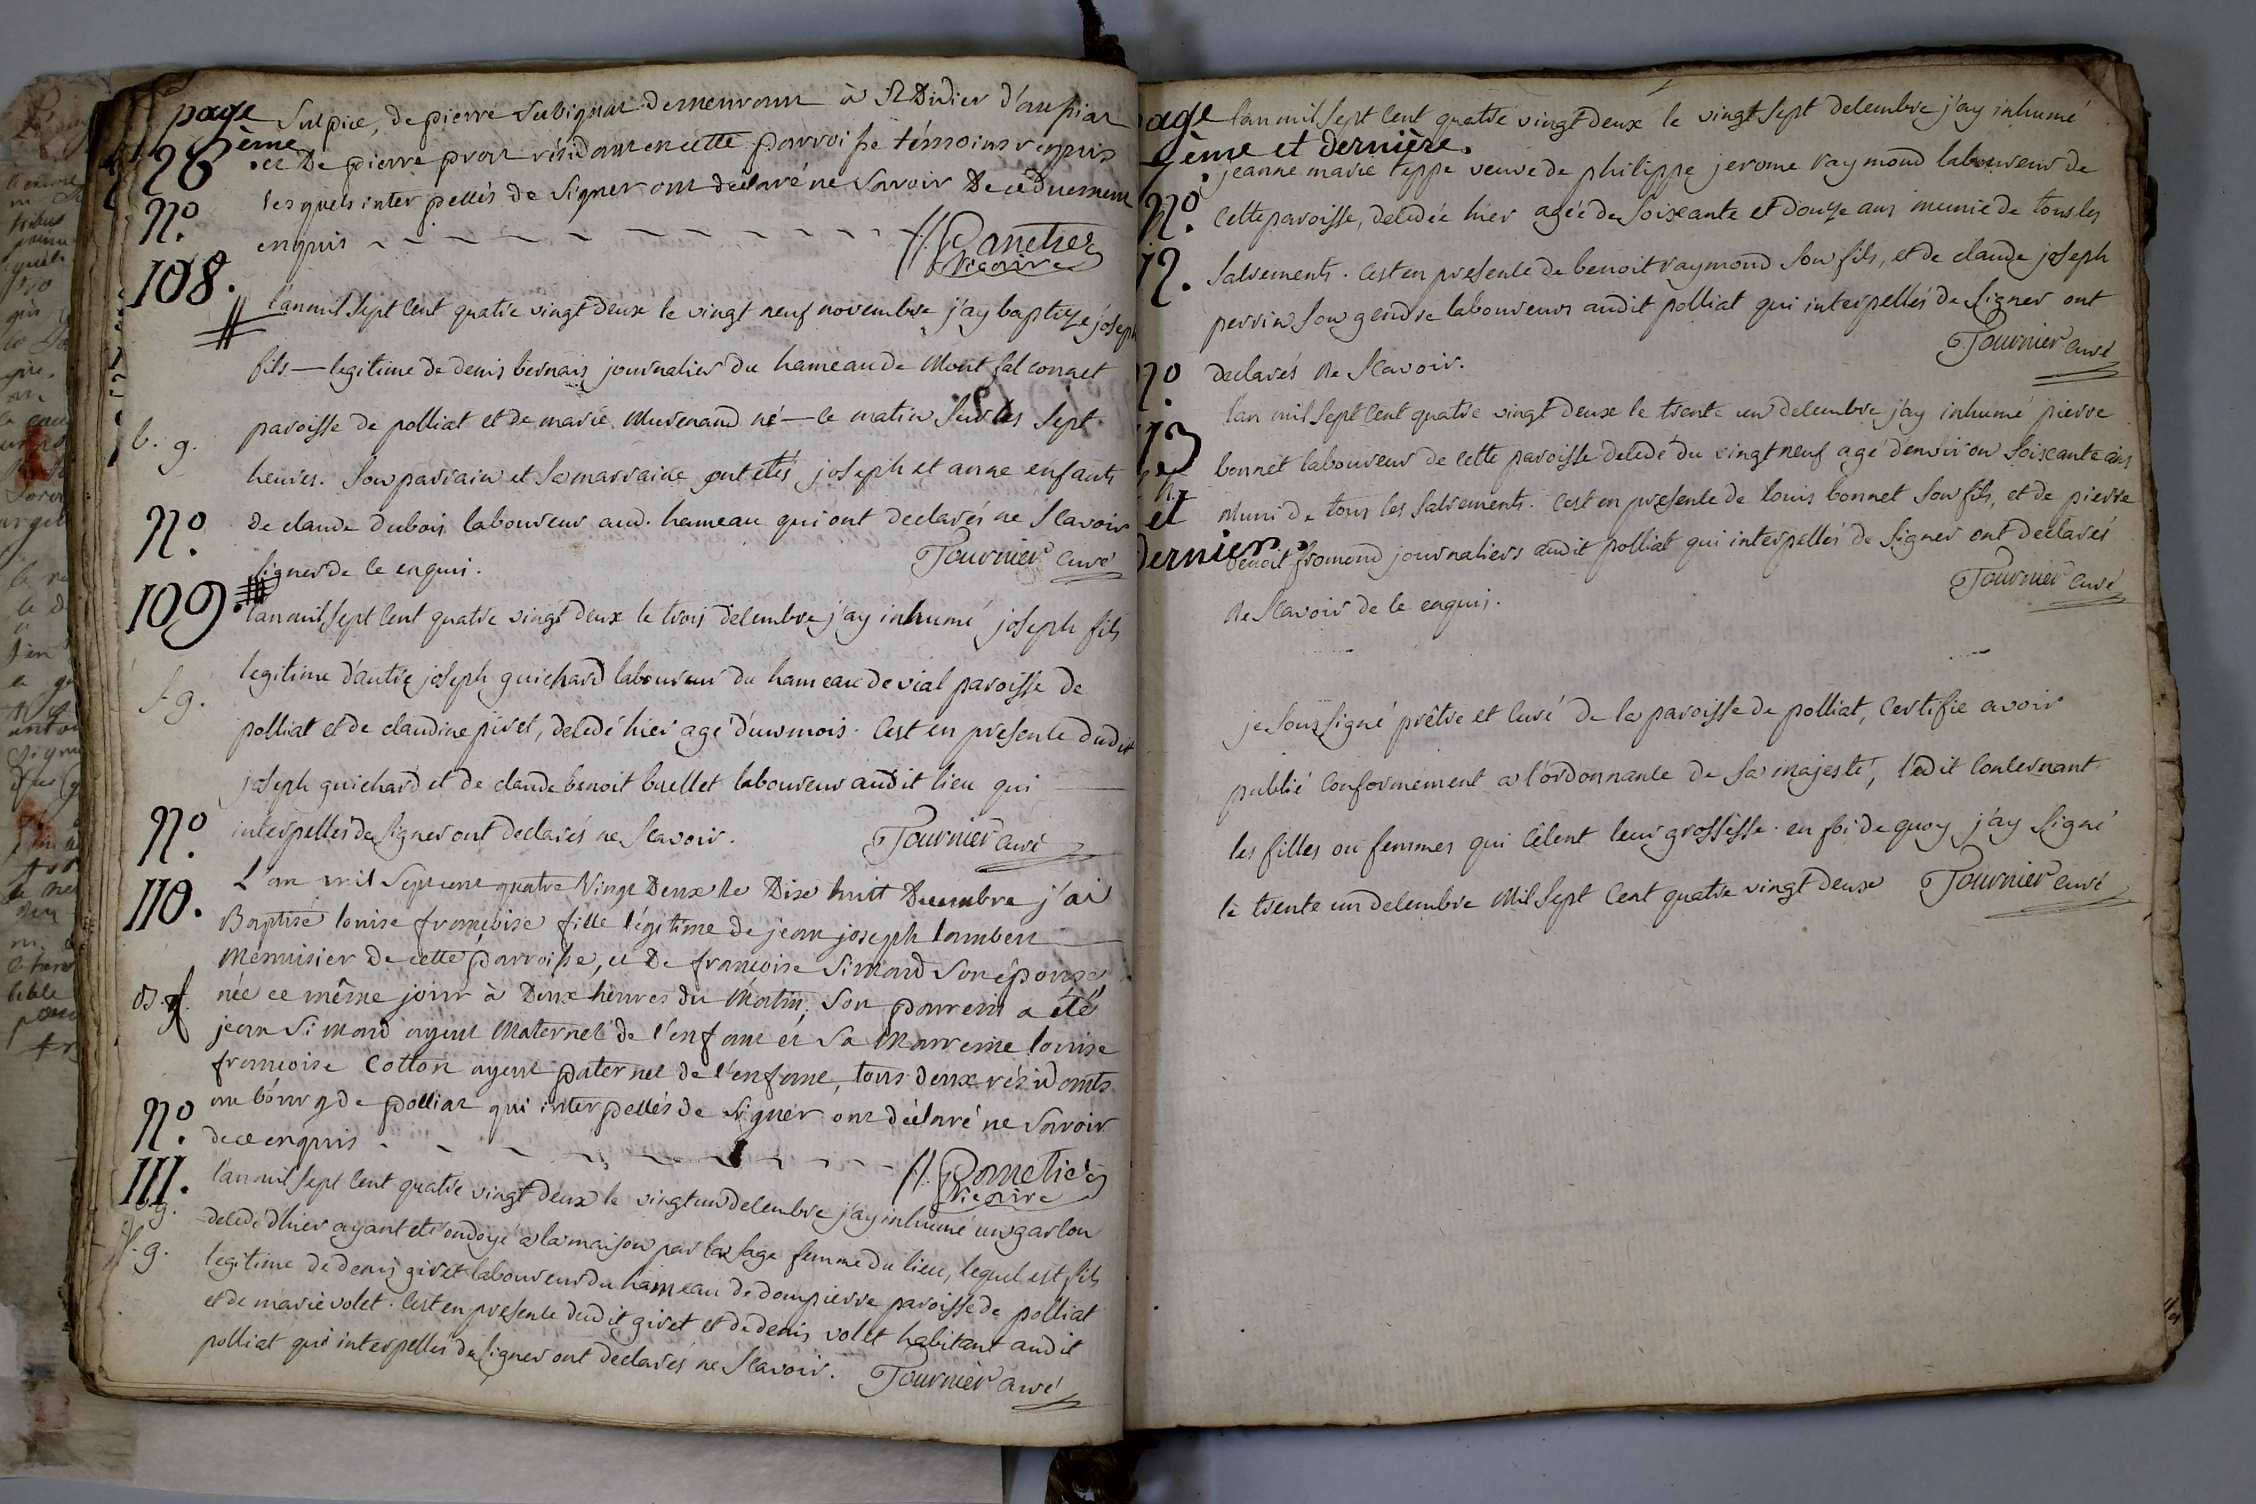 page
26
ème.
Sulpice, de pierre Subignat demeurant à St Didier d'aussiat
et De pierre prost résidant en cette parroisse témoins requis
lesquels interpellés de signer ont declaré ne savoir De ce Duement
enquis
vicaire
n.o
108.
l'an mil sept cent quatre vingt deux le vingt neuf novembre j'ay baptizé joseph
fils — legitime de denis bernais journalier du hameau de Mont fal connet
paroisse de polliat et de marie Murenand né — ce matin sur les sept
heures. Son parrain et sa marraine ont etés joseph et anne enfants
de claude dubois laboureur aud. hameau qui ont declarés ne scavoir
signer de ce enquis. Tournier curé
b. g.
n.o
109.
l'an mil sept cent quatre vingt deux le trois decembre j'ay inhumé joseph fils
legitime d'autre joseph guichard laboureur du hameau de vial paroisse de
polliat et de claudine pivet, decedé hier agé d'un mois. C'est en presence dudit
joseph guichard et de claude benoit buellet laboureur audit lieu qui
interpellés de signer ont declarés ne scavoir. Tournier curé
s. g.
n.o
110.
L'an mil sept cent quatre Vingt Deux le Dix huit Decembre j'ai
Baptisé louise françoise fille légitime de jean joseph lambert
Menuisier de cette parroisse, et De françoise Simand son épouse,
née ce même jour à Deux heures du Matin; son parrein a été
jean Simand ayeul Maternel de l'enfant et sa Marreine louise
françoise Cotton ayeul paternel de l'enfant, tous deux résidants
au bourg de polliat qui interpellés de signer ont déclaré ne savoir
de ce enquis
vicaire
b. f.
n.o
111.
l'an mil sept cent quatre vingt deux le vingt un decembre j'ay inhumé un garcon
decedé d'hier ayant eté ondoyé a la maison par la sage femme du lieu, lequel est fils
legitime de denis givet laboureur du hameau de dompierre paroisse de polliat
et de marie volet. C'est en presence dudit givet et de denis volet habitant audit
polliat qui interpellés de signer ont declarés ne scavoir. Tournier curé
s. g.
age
ème et dernière.
l'an mil sept cent quatre vingt deux le vingt sept decembre j'ay inhumé
jeanne marie teppe veuve de philippe jerome raymond laboureur de
cette paroisse, decedée hier agée de soixante et douze ans munie de tous les
sacrements. C'est en presence de benoit raymond son fils, et de claude joseph
perrin son gendre laboureurs audit polliat qui interpellés de signer ont
declarés ne scavoir. Tournier curé
n.o
12.
n.o
13
et
dernier.
l'an mil sept cent quatre vingt deux le trente un decembre j'ay inhumé pierre
bonnet laboureur de cette paroisse decedé du vingt neuf agé d'environ soixante ans
muni de tous les sacrements. C'est en presence de louis bonnet son fils, et de pierre
benoit fromond journaliers audit polliat qui interpellés de signer ont declarés
ne scavoir de ce enquis. Tournier curé
je soussigné prêtre et curé de la paroisse de polliat, certifie avoir
publié conformement a l'ordonnance de sa majesté, l'edit concernant
les filles ou femmes qui cêlent leur grossesse. en foi de quoy j'ay signé
le trente un decembre mil sept cent quatre vingt deux Tournier curé